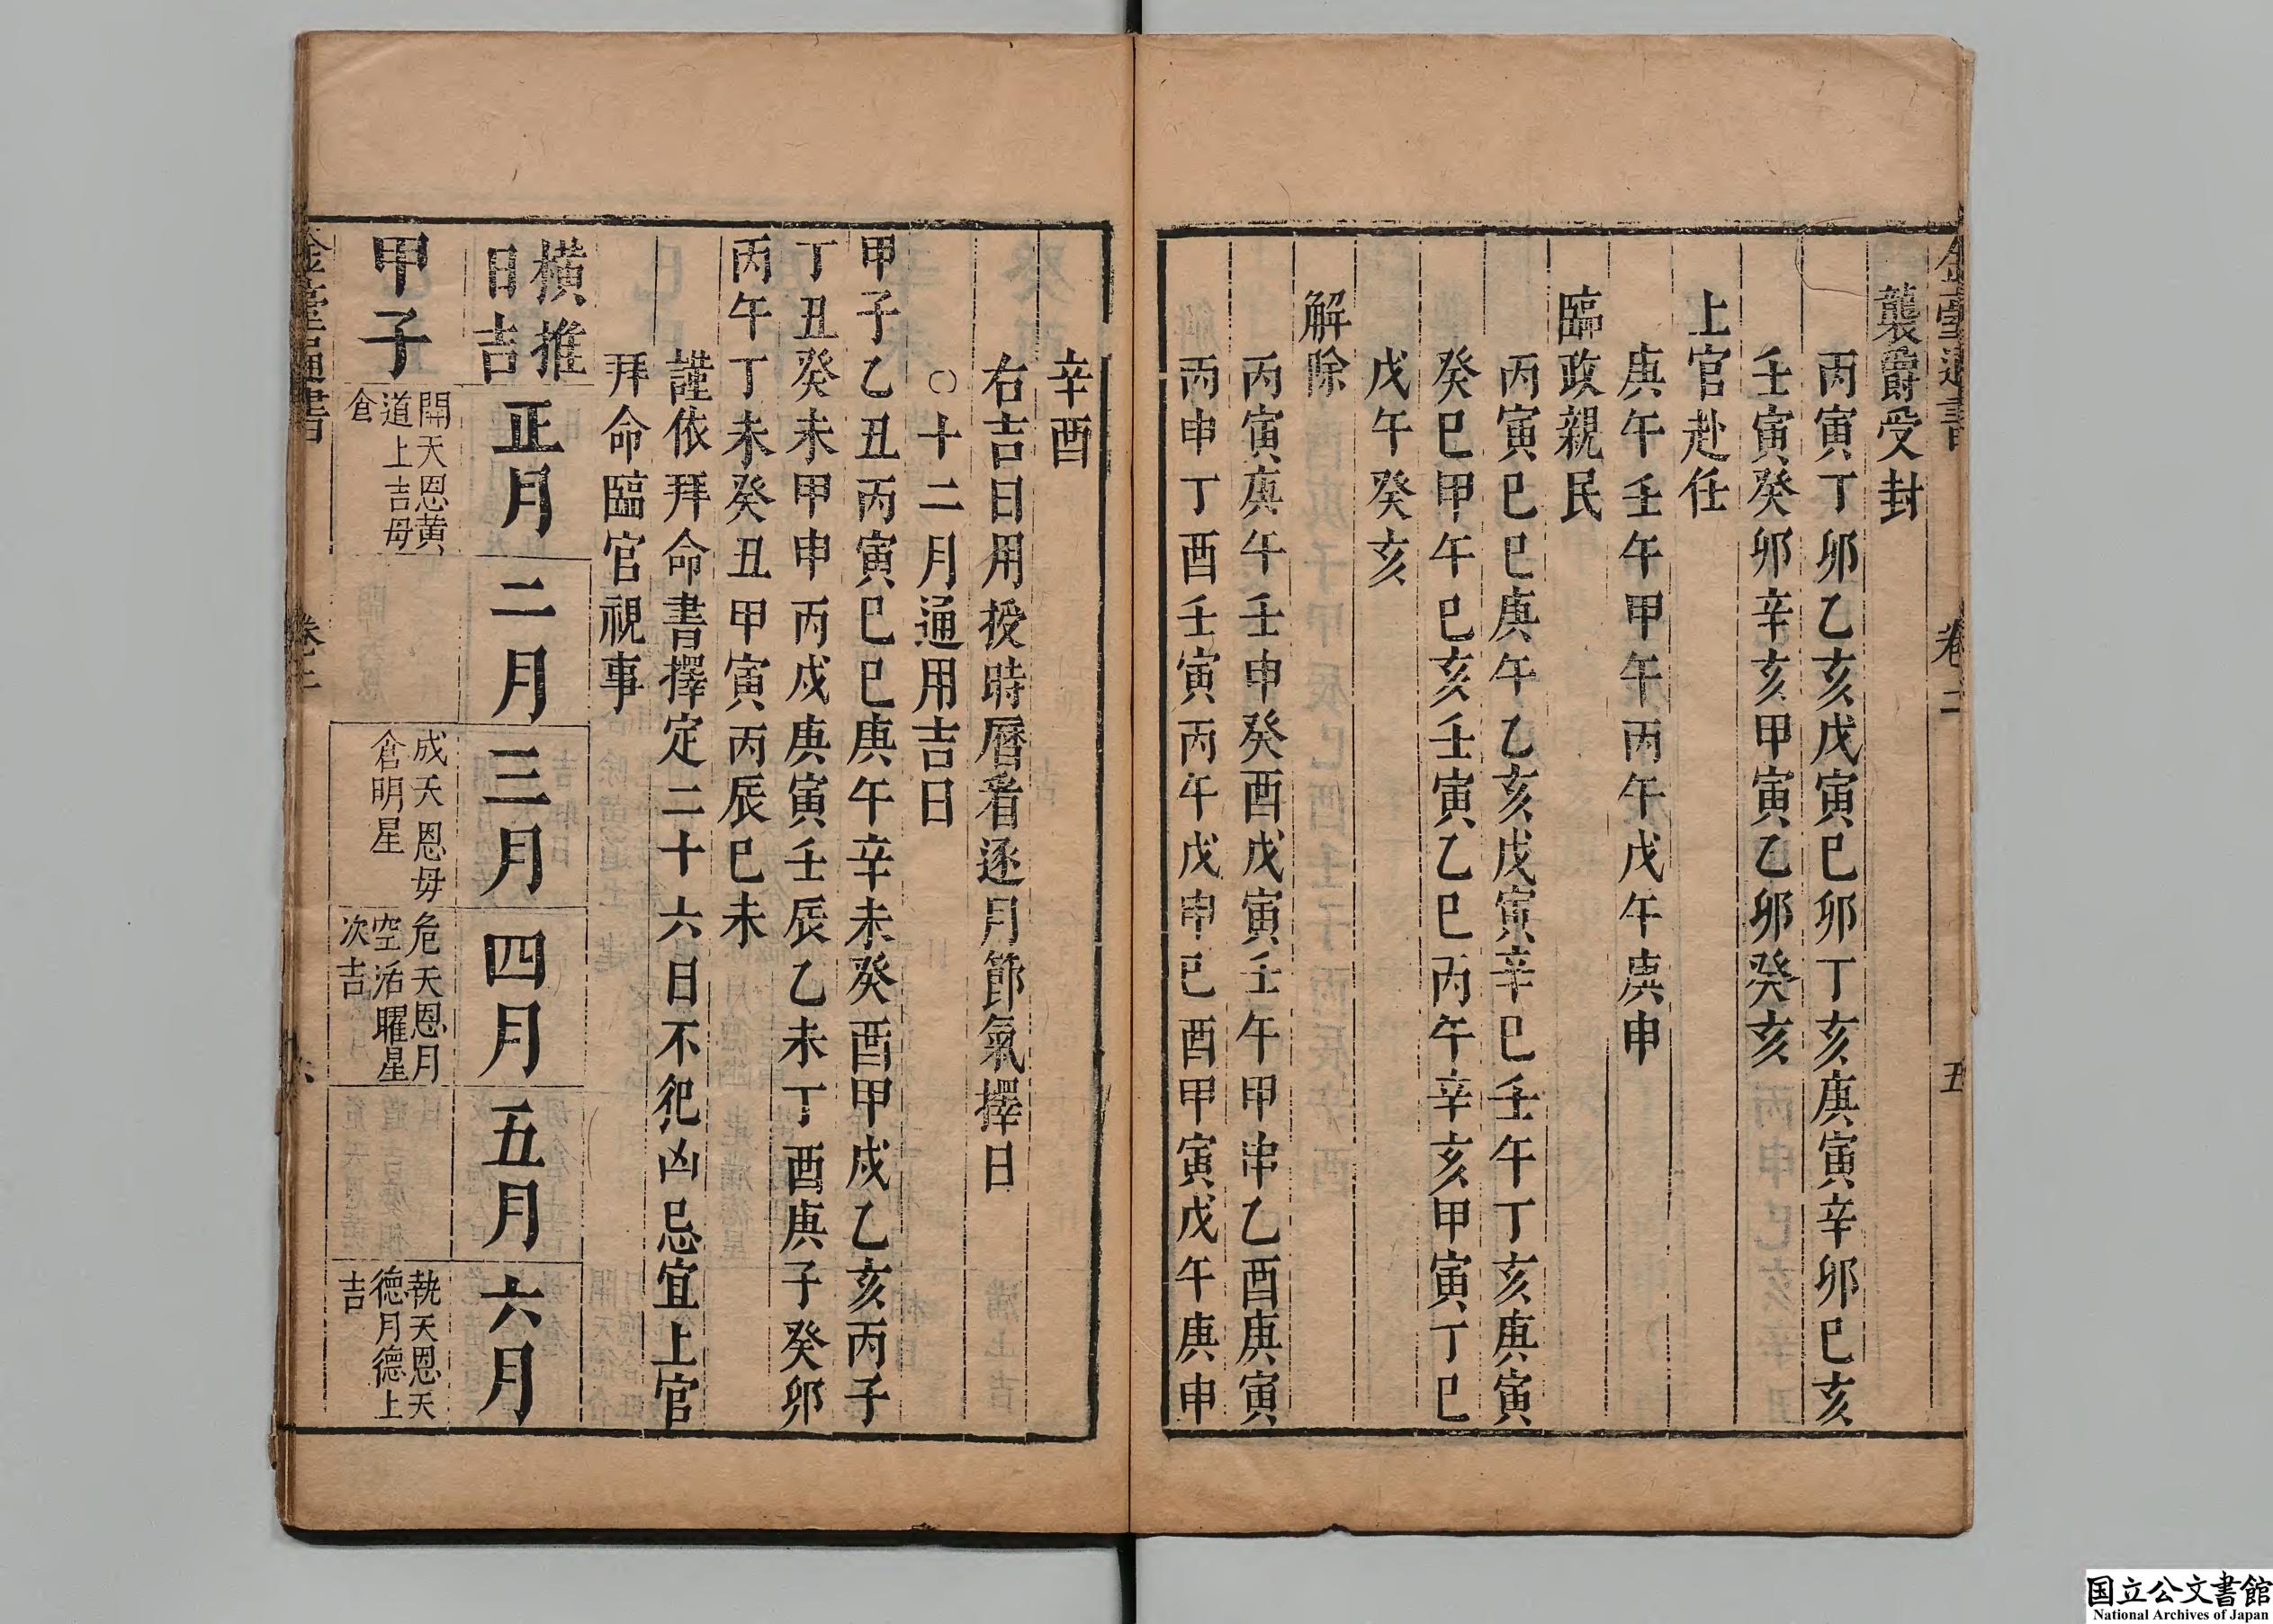 金臺通書 卷二 五
襲爵受封
丙寅丁卯乙亥戊寅巳卯丁亥庚寅辛卯巳亥
壬寅癸卯辛亥甲寅乙卯癸亥
上官赴任
庚午壬午甲午丙午戊午庚申
臨政親民
丙寅巳巳庚午乙亥戊寅辛巳壬午丁亥庚寅
癸巳甲午巳亥壬寅乙巳丙午辛亥甲寅丁巳
戊午癸亥
解除
丙寅庚午壬申癸酉戊寅壬午甲申乙酉庚寅
丙申丁酉壬寅丙午戊申巳酉甲寅戊午庚申
辛酉
右吉日用授時曆看逐月節氣擇日
○十二月通用吉日
甲子乙丑丙寅巳巳庚午辛未癸酉甲戌乙亥丙子
丁丑癸未甲申丙戌庚寅壬辰乙未丁酉庚子癸卯
丙午丁未癸丑甲寅丙辰巳未
謹依拜命書擇定二十六日不犯凶忌宜上官
拜命臨官視事
橫推
日吉
正月
二月
三月
四月
五月
六月
甲子
開天恩黄
道上吉毋
倉
成天恩毋
倉明星
危天恩月
空活曜星
次吉
執天恩天
德月德上
吉
金臺通書 卷二 六
国立公文書館
National Archives of Japan